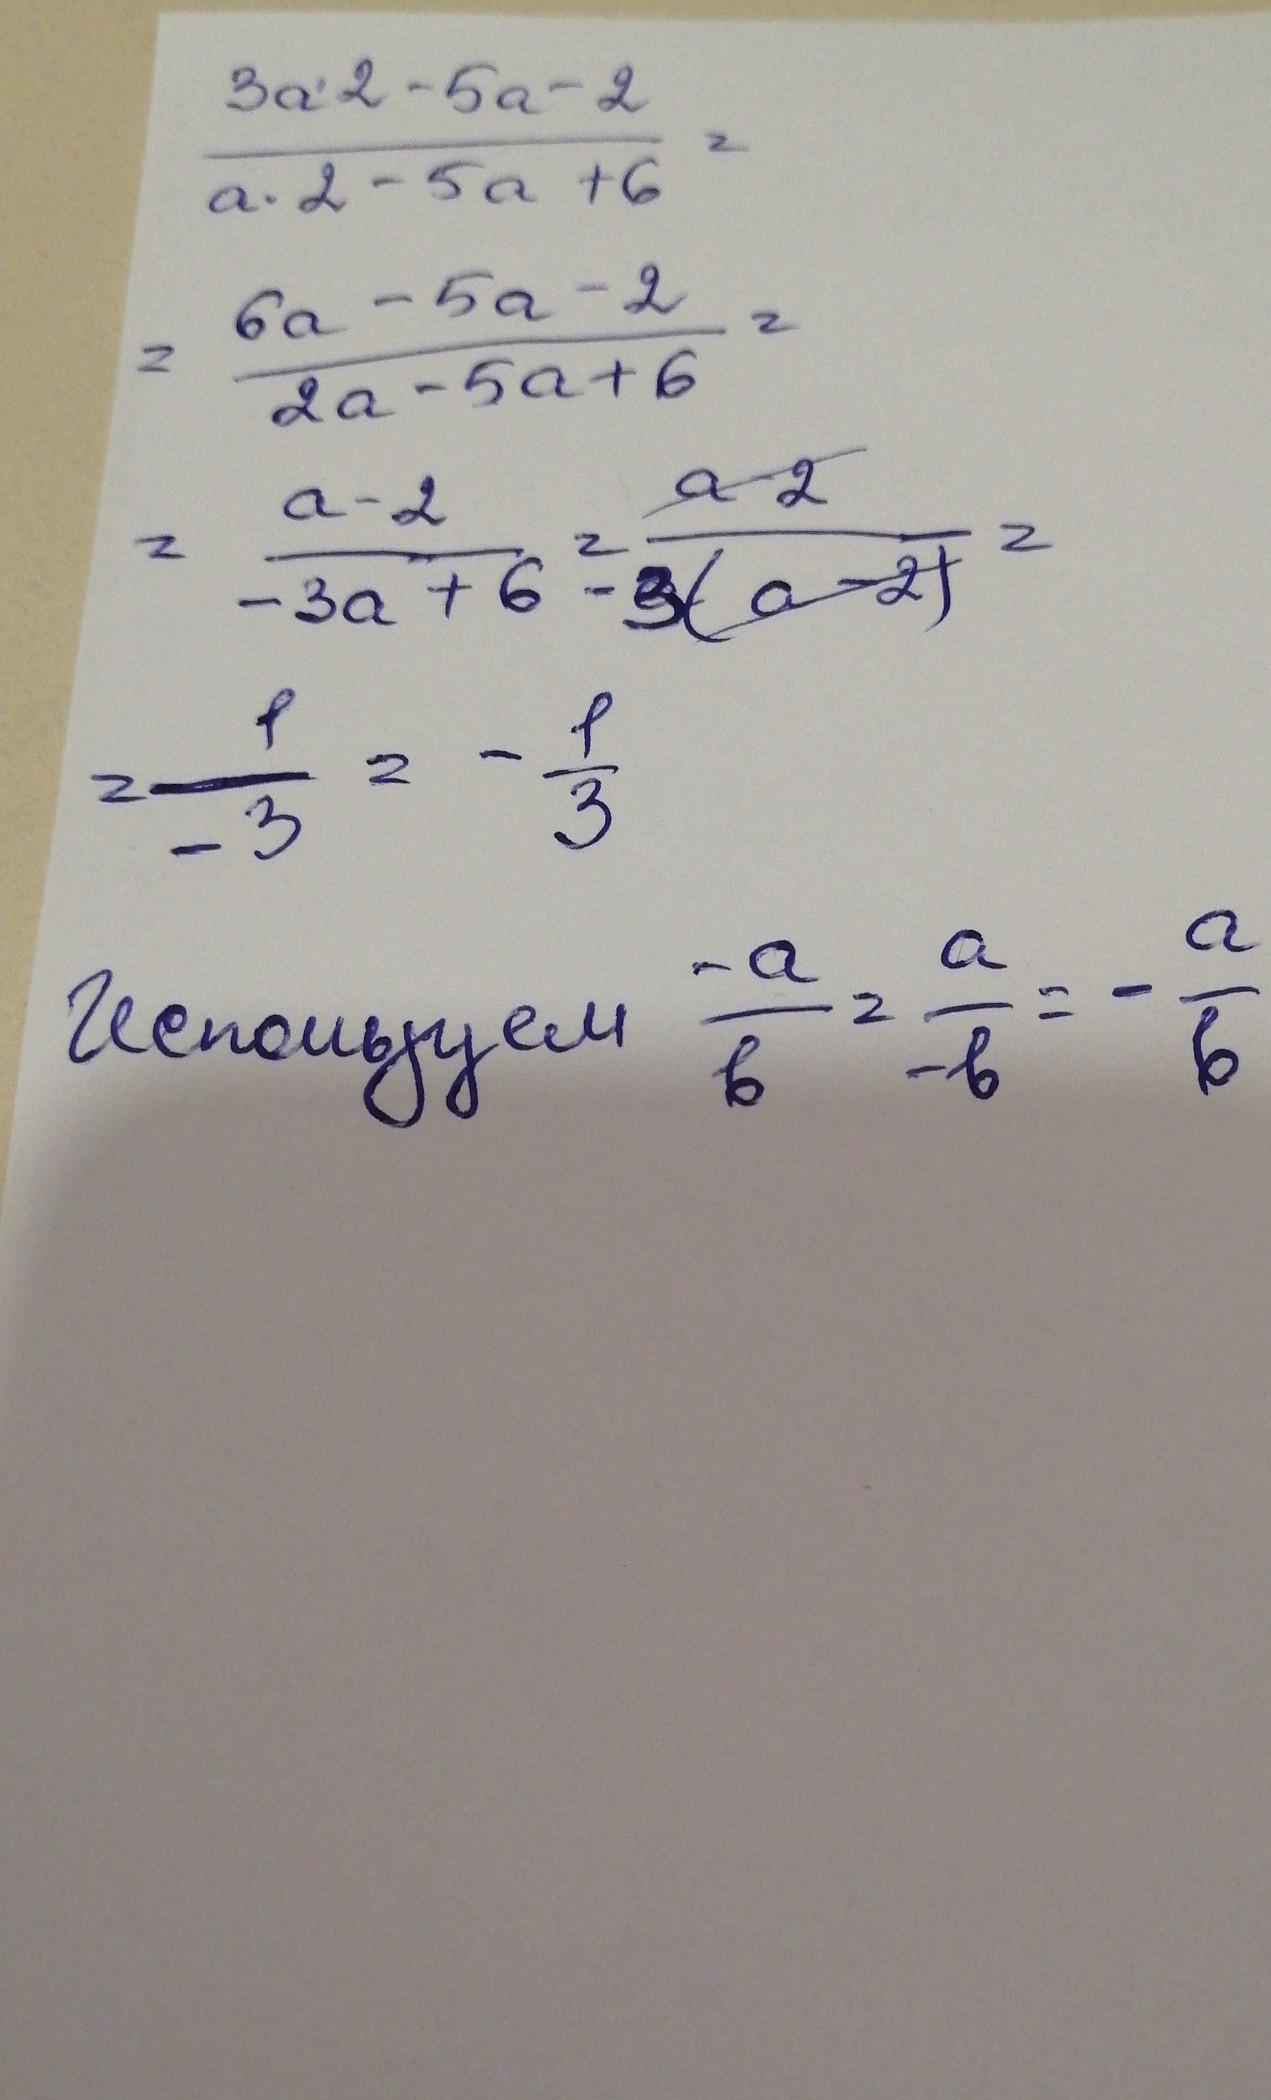 3a·2 - 5a - 2
a·2 - 5a + 6 =
= 6a - 5a - 2 =
2a - 5a + 6
= a - 2 = a - 2 =
-3a + 6 -3(a - 2)
= 1 = - 1
-3 3
Используем -a = a = - a
b -b b